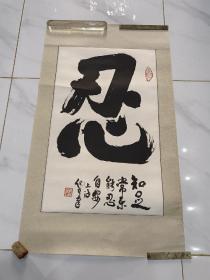 忍
知足
常乐
能忍
自安
上海